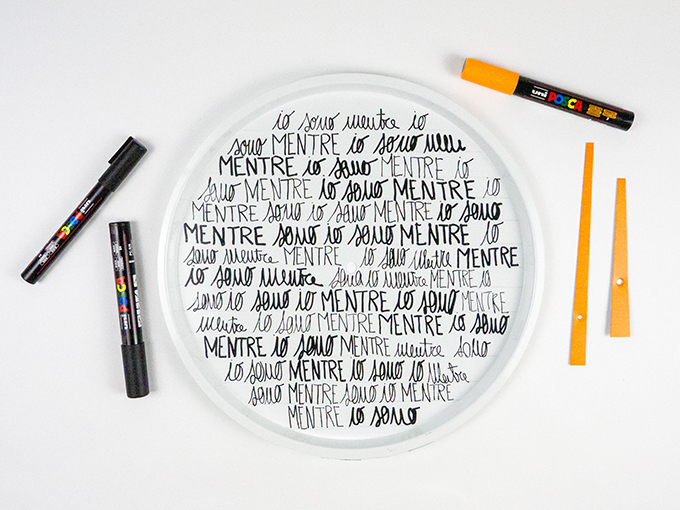 io sono mentre io
sono MENTRE io sono
MENTRE io sono MENTRE io
sono MENTRE io sono MENTRE io
MENTRE sono io sono MENTRE io sono
MENTRE sono io sono MENTRE io
sono mentre MENTRE io sono mentre MENTRE
io sono mentre sono io mentre MENTRE io
sono io sono io MENTRE io sono MENTRE
mentre io sono MENTRE MENTRE io sono
MENTRE io sono MENTRE mentre sono
io sono MENTRE io sono io mentre
sono MENTRE sono io MENTRE
MENTRE io sono
uni POSCA
POSCA
POSCA